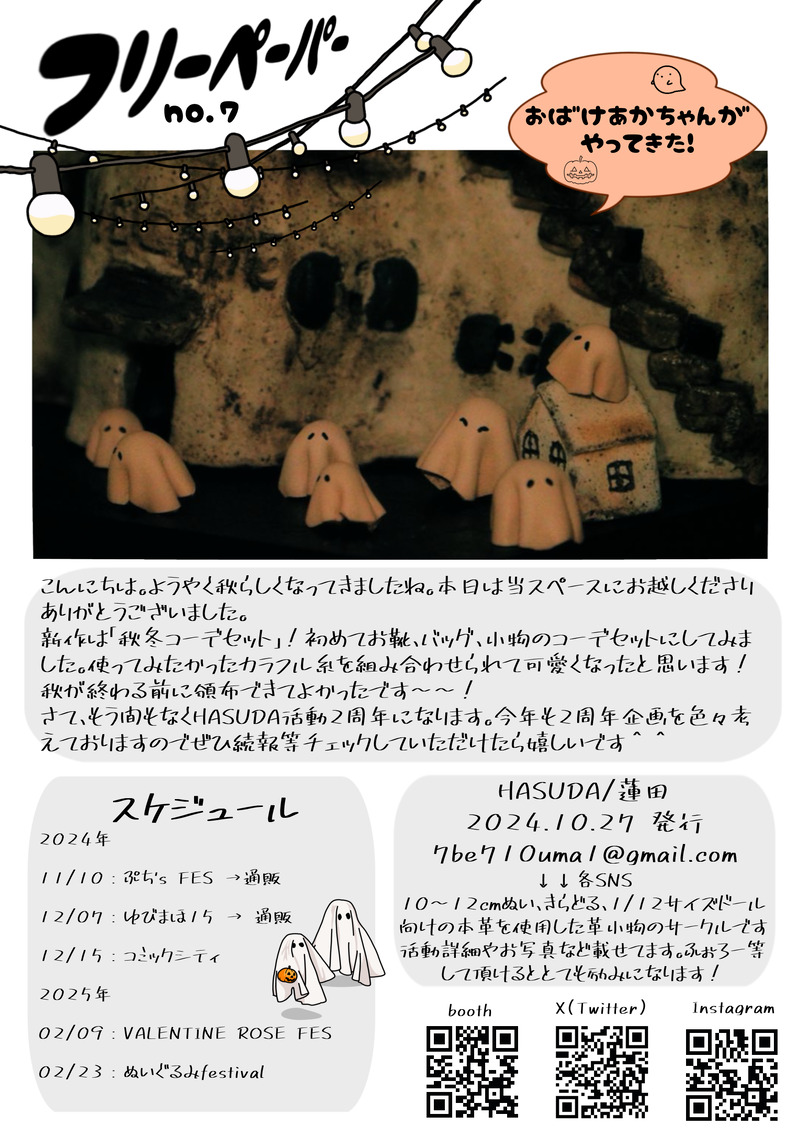 フリーペーパー
no.7
おばけあかちゃんが
やってきた!
こんにちは。ようやく秋らしくなってきましたね。本日は当スペースにお越しくださり
ありがとうございました。
新作は「秋冬コーデセット」！初めてお靴、バッグ、小物のコーデセットにしてみま
した。使ってみたかったカラフル糸を組み合わせられて可愛くなったと思います！
秋が終わる前に頒布できてよかったです～～！
さて、そう間もなくHASUDA活動2周年になります。今年も2周年企画を色々考
えておりますのでぜひ続報等チェックしていただけたら嬉しいです＾＾
スケジュール
2024年
11/10：ぷち's FES →通販
12/07：ゆびまほ15 → 通販
12/15：コミックシティ
2025年
02/09：VALENTINE ROSE FES
02/23：ぬいぐるみfestival
HASUDA/蓮田
2024.10.27 発行
7be710uma1@gmail.com
↓↓各SNS
10～12cmぬい、きらどる、1/12サイズドール
向けの本革を使用した革小物のサークルです
活動詳細やお写真など載せてます。ふぉろー等
して頂けるととても励みになります！
booth
X(Twitter)
Instagram